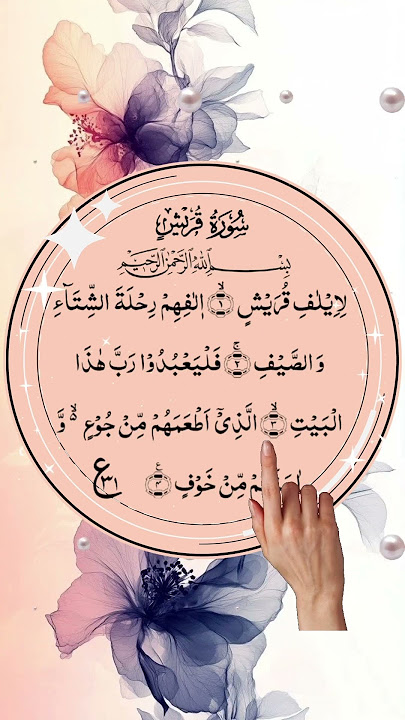 سُوۡرَةُ قُرَيۡشٍ
بِسۡمِ اللهِ الرَّحۡمٰنِ الرَّحِيۡمِ
لِاِيۡلٰفِ قُرَيۡشٍۙ‏ ﴿۱﴾ اٖلٰفِهِمۡ رِحۡلَةَ الشِّتَآءِ
وَالصَّيۡفِ‌ۚ ﴿۲﴾ فَلۡيَعۡبُدُوۡا رَبَّ هٰذَا
الۡبَيۡتِۙ ﴿۳﴾ الَّذِىۡۤ اَطۡعَمَهُمۡ مِّنۡ جُوۡعٍ ۙ وَّ
مِّنۡ خَوۡفٍ ﴿۴﴾ ع ۳۱